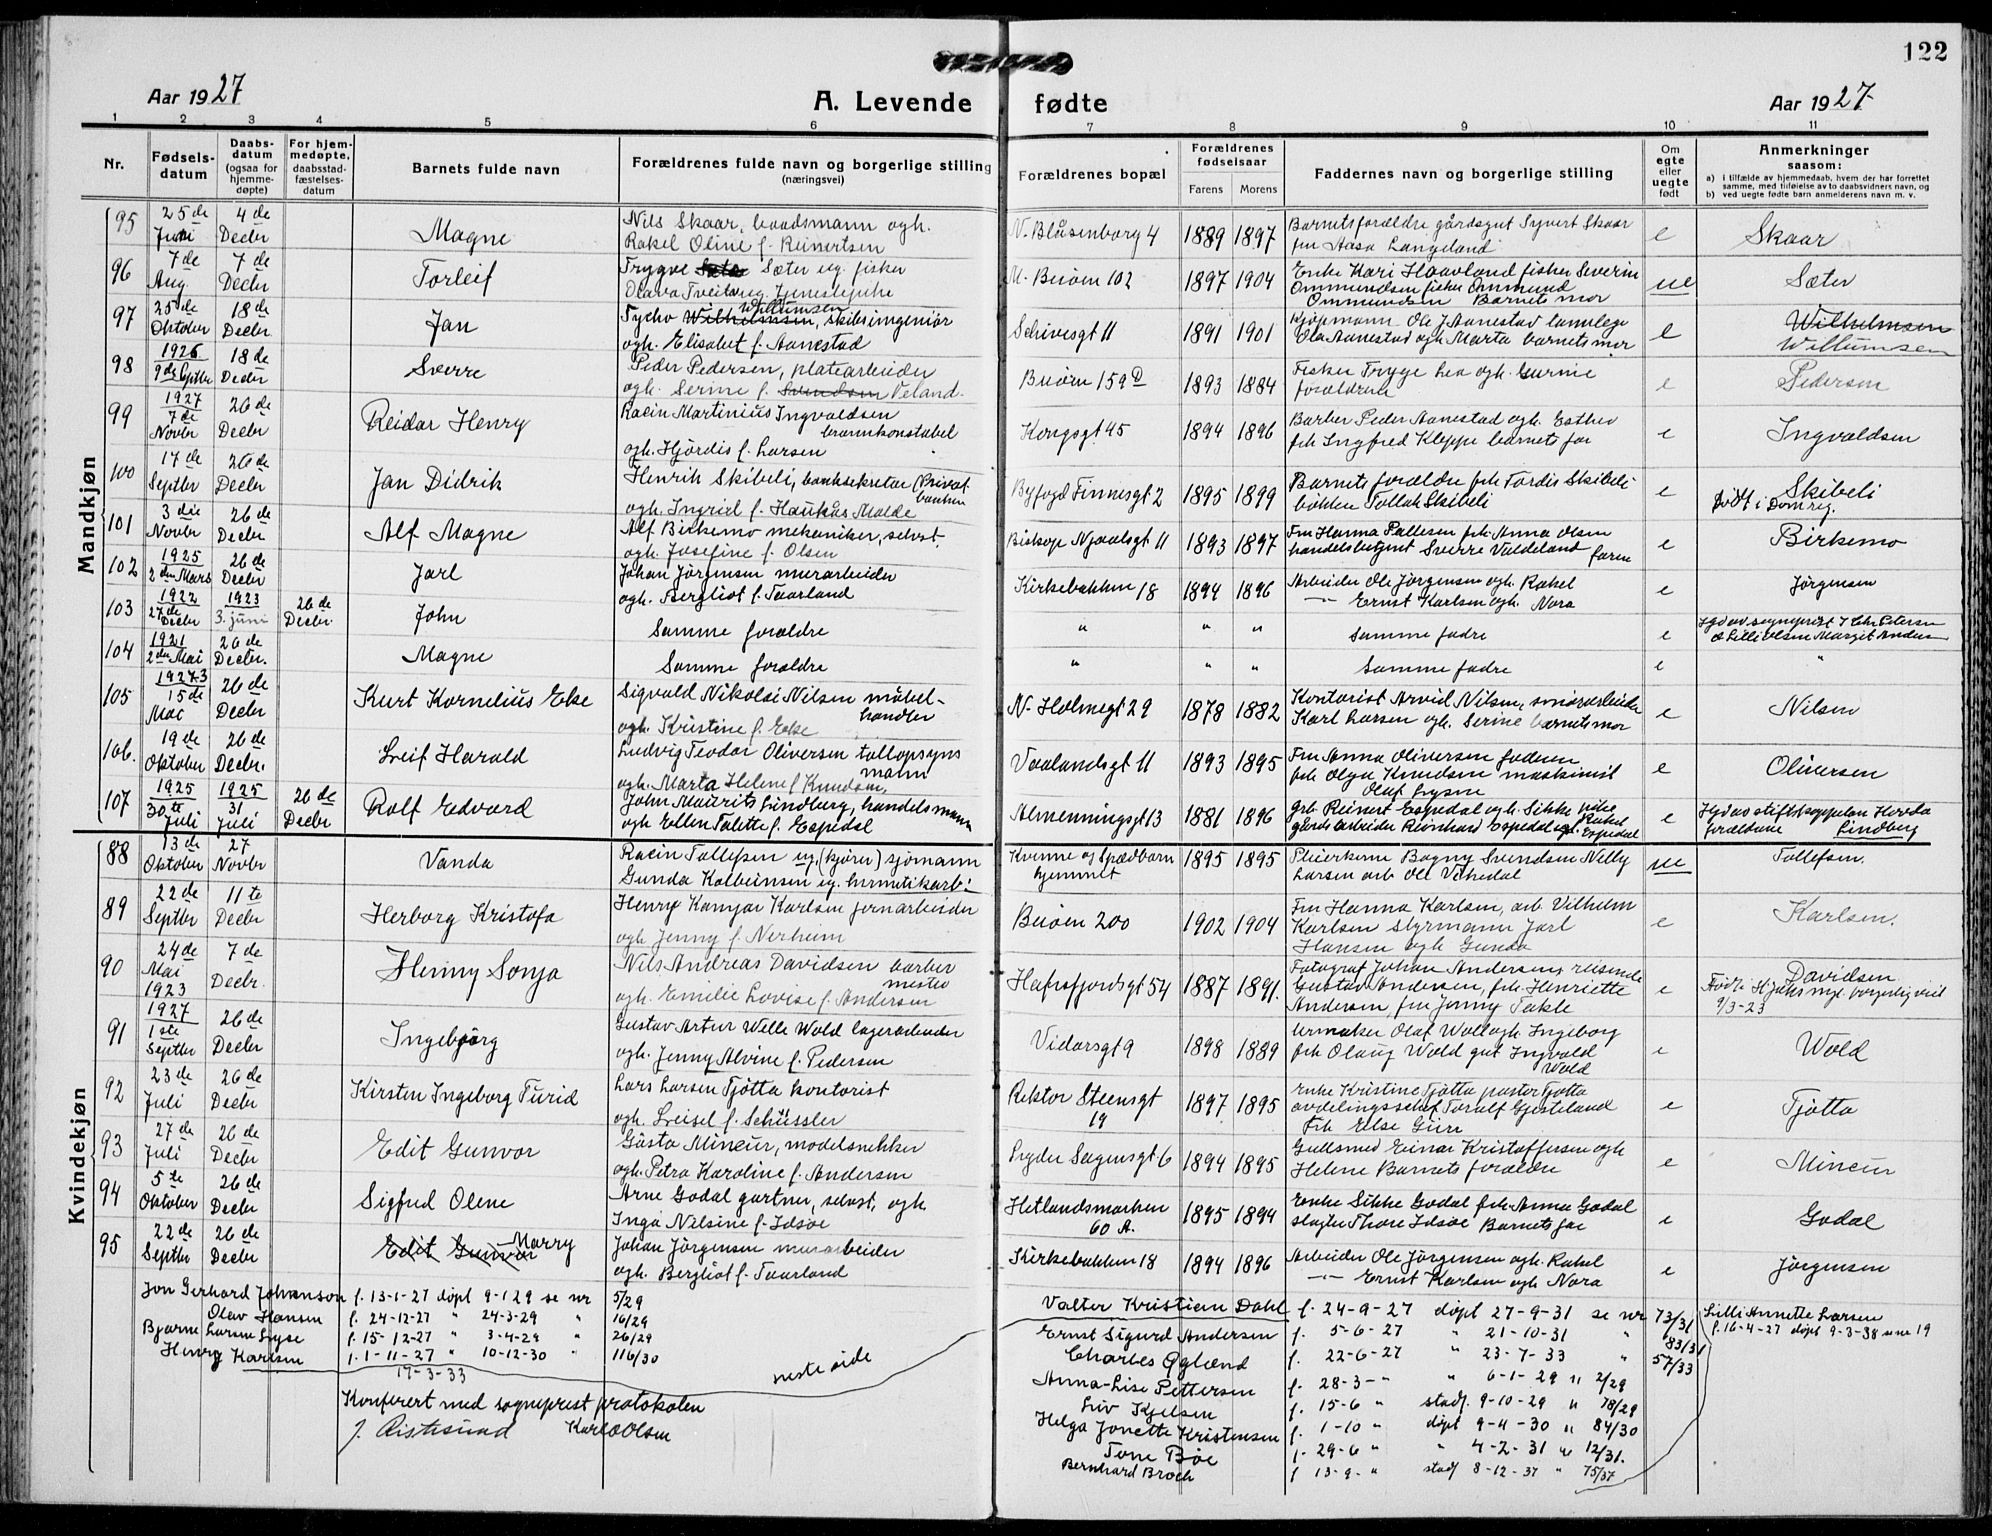 122
Aar 1927
A. Levende fødte
Aar 1927
1 2 3 4 5 6 7 8 9 10 11
Nr.
Fødsels-datum
Daabs-datum (ogsaa for hjemme-døpte)
For hjem-medøpte, daabsstad-fæstelses-datum
Barnets fulde navn
Forældrenes fulde navn og borgerlige stilling (næringsvei)
Forældrenes bopæl
Forældrenes fødselsaar
Farens Morens
Faddernes navn og borgerlig stilling
Om egte eller uegte født
Anmerkninger saasom:
a) i tilfælde av hjemmedaab, hvem der har forrettet samme, med tilføielse av to daabsvidners navn, og
b) ved uegte fødte barn anmelderens navn m. v.
Mandkjøn
95 25de Juni 4de Decbr Magne Nils Skaar, baadsmann ogh. Rakel Oline f. Reinertsen N. Blåsenborg 4 1889 1897 Barnets forældre gårdsgut Syvert Skaar frn Aasa Langeland e Skaar
96 7de Aug 7de Decbr Torleif Trygve Sæter ug. fisker Olava Tveita ug. tjenestepike M. Buøen 102 1897 1904 Enke Kari Haavland fisker Severin Ommundsen fisker Ommund Ommundsen Barnets mor ue Sæter
97 25de Oktober 18de Decbr Jan Tycho Wilhelmsen Willumsen, skibsingeniør ogh. Elisabet f. Aanestad Schivesgt 11 1891 1901 Kjøpmann Ole J Aanestad tannlege Ola Aanestad ogh Marta barnets mor e Wilhelmsen Willumsen
98 1926 9de Septbr 18de Decbr Sverre Peder Pedersen, platearbeider ogh. Serine f. Svendsen Veland. Buøen 159D 1893 1884 Fisker Trygve Lea ogh. Gurine forældrene e Pedersen
99 1927 7de Novbr 26de Decbr Reidar Henry Racin Martinius Ingvaldsen brannkonstabel ogh. Hjördis f. Larsen Kongsgt 45 1894 1896 Barber Peder Aanestad ogh. Esther frk Ingfred Kleppe barnets far e Ingvaldsen
100 17de Septbr 26de Decbr Jan Didrik Henrik Skibeli, banksekretær Privatbanken ogh. Ingrid f. Haukås Molde Byfogd Finnesgt 2 1895 1899 Barnets forældre frk Tordis Skibeli bokken Tollak Skibeli e Skibeli født i Domreg.
101 3die Novbr 26de Decbr Alf Magne Alf Birkemo mekaniker, selvst. ogh. Josefine f. Olsen Biskop Njaalsgt 11 1893 1897 Frn Hanna Pallesen frk Anna Olsen handelsbetjent Sverre Valdeland faren e Birkemo
102 1925 2den Mars 26de Decbr Jarl Johan Jörgensen murarbeider ogh. Bergliot f. Taarland Kirkebakken 18 1894 1896 Arbeider Ole Jörgensen ogh. Rakel — Ernst Karlsen ogh. Nora e Jörgensen
103 1922 27de Decbr 1923 3. juni 26de Decbr. John Samme forældre " " " samme fadre e Hjd av sogneprest J Chr Petersen
104 1921 2den Mai 26de Decbr. Magne Samme forældre " " " samme fadre e "
105 1927 15de Mai 26de Decbr Kurt Kornelius Eke Sigvald Nikolai Nilsen möbelhandler ogh. Kristine f. Eke N. Holmegt 29 1878 1882 Kontorist Arvid Nilsen, smörarbeider Karl Larsen ogh. Serine barnets mor e Nilsen
106. 19de Oktober 26de Decbr. Leif Harald Ludvig Teodor Oliversen tollopsynsmann ogh. Marta Helene f Knudsen. Vaalandsgt 11 1893 1895 Frn Anna Oliversen faderen frk Olga Knudsen maskinist Olaf Lysne e Oliversen
107 1925 30te Juli 1925 31 Juli 26de Decbr Rolf Edvard John Maurits Lindberg, handelsmann ogh Ellen Talette f. Espedal Almenningsgt 13 1881 1896 grb. Reinert Espedal ogh. Sikke pike gårdsarbeider Reinhard Espedal ogh. Rakel Espedal e Hjd av stiftskappelan Hovda forældrene Lindberg
Kvindekjøn
88 13de Oktober 27 Novbr Vanda Racin Tollefsen ug. (kjører) sjömann Gunda Kolbeinsen ug. hermetikarb. Kvinne og Spædbarn hjemmet 1895 1895 Pleierskene Bagny Svendsen Nelly Larsen arb Ole Vikedal ue Tollefsen.
89 22de Septbr 11te Decbr Herborg Kristofa Henry Kamjar Karlsen jernarbeider ogh Jenny f. Nerheim Buøen 200 1902 1904 Frn Hanna Karlsen, arb Vilhelm Karlsen Styrmann Jarl Hansen ogh Gunda e Karlsen.
90 24de Mai 1923 7de Decbr. Henny Sonja Nils Andreas Davidsen barber mester ogh. Emilie Lovise f. Andersen Hafrsfjordsgt 54 1887 1891. Fotograf Johan Andersen, reisende Gustav Andersen, frk. Henriette Andersen, frn Jenny Takle e Davidsen Født i St. Johs mgl. borgerlig viet 9/3-23
91 1927 1ste Septbr 26de Decbr Ingebjørg Gustav Artur Welle Wold lagerarbeider ogh. Jenny Alvine f. Pedersen Vidarsgt 9 1898 1889 Urmaker Olaf Wold ogh. Ingeborg frk Olaug Wold gut Ingvald Wold e Wold
92 23de Juli 26de Decbr Kirsten Ingeborg Turid Lars Larsen Tjötta kontorist ogh. Leisel f. Schüssler Rektor Steensgt 19 1897 1895 Enke Kristine Tjötta pastor Tjötta avdelingsschef Toralf Gjesteland frk Else Giire e Tjötta
93 27de Juli 26de Decbr Edit Gunvor Gösta Mineur, modelsnekker ogh. Petra Karoline f. Andersen Lyder Sagensgt 6 1894 1895 Gullsmed Einar Kristoffersen ogh Helene Barnets forældre e Mineur
94 5te Oktober 26de Decbr Sigfred Olene Arne Godal gartner, selvst., ogh. Inga Nilsine f. Idsöe Hetlandsmarken 60 A. 1895 1894 Enke Sikke Godal frk. Anna Godal slagter Thore Idsöe Barnets far e Godal
95 22de Septbr 26de Decbr Edit Gunvor Marry Johan Jörgensen murarbeider ogh. Bergliot f. Taarland Kirkebakken 18 1894 1896 Arbeider Ole Jörgensen ogh. Rakel — Ernst Karlsen ogh Nora e Jörgensen
Jon Gerhard Johanson f. 13-1-27 døpt 9-1 29 se nr 5/29
Olav Hansen f. 24-12-27 " 24-3-29 " 16/29
Bjarne Larsen Lyse f. 15-12-27 " 3-4-29 " 26/29
Henry Karlsen f. 1-11-27 " 10-12-30 " 116/30
17-3-33 neste side
Konferert med sogneprest protokolen
Karl Olsen
Valter Kristian Dahl f. 24-9-27 døpt 27-9-31 se nr 73/31
Ernst Sigurd Andersen f. 5-6-27 " 21-10-31 " 83/31
Charles Ogland f. 22-6-27 " 23-7-33 " 57/33
Anna-Lise Pettersen f. 28-3-" " 6-1-29 " 2/29
Liv Kjelsen f. 15-6 " stadf. 9-10-29 " 78/29
Helga Jonette Kristensen f. 1-10 " døpt 9-4-30 " 84/30
Tone Bøe f. 29-6 " " 4-2-31 " 12/31.
Bernhard Broch f 13-9-" stadf 8-12-37 " 75/37
Lilli Annette Larsen f. 16-4-27 døpt 9-3-38 se nr 19